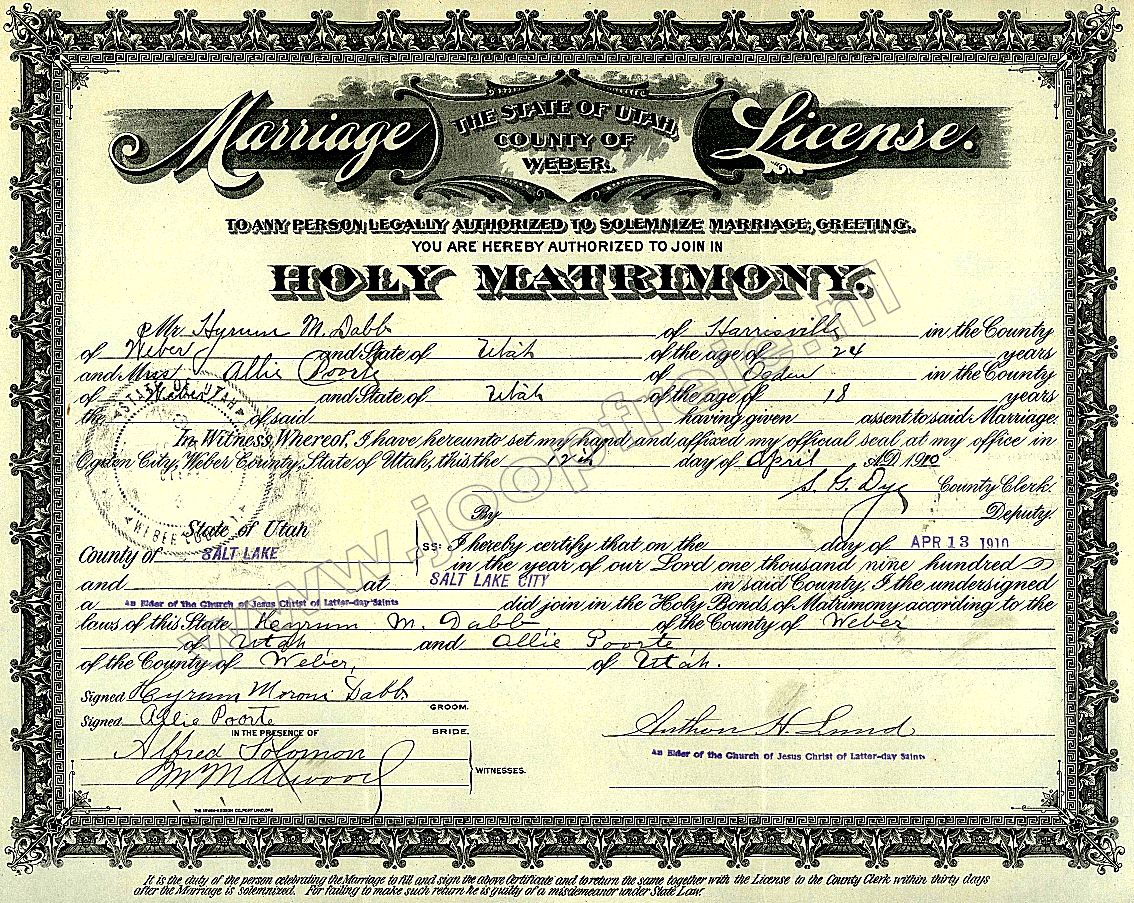 Marriage License.
THE STATE OF UTAH,
COUNTY OF
WEBER.
TO ANY PERSON LEGALLY AUTHORIZED TO SOLEMNIZE MARRIAGE, GREETING.
YOU ARE HEREBY AUTHORIZED TO JOIN IN
HOLY MATRIMONY.
Mr. Hyrum M. Dabb of Harrisville in the County
of Weber and State of Utah of the age of 24 years
and Miss Allie Poorte of Ogden in the County
of Weber and State of Utah of the age of 18 years
the of said having given assent to said Marriage.
In Witness Whereof, I have hereunto set my hand and affixed my official seal at my office in
Ogden City, Weber County, State of Utah, this the 12th day of April A.D. 1910
S. G. Dye County Clerk.
By Deputy.
STATE OF UTAH
WEBER COUNTY
State of Utah
County of SALT LAKE
SS: I hereby certify that on the day of APR 13 1910
in the year of our Lord one thousand nine hundred
and at SALT LAKE CITY in said County, I the undersigned
a an Elder of the Church of Jesus Christ of Latter-day Saints did join in the Holy Bonds of Matrimony according to the
laws of this State Hyrum M. Dabb of the County of Weber
of Utah and Allie Poorte
of the County of Weber, of Utah.
Signed Hyrum Moroni Dabb
GROOM.
Signed Allie Poorte
BRIDE.
IN THE PRESENCE OF
Alfred Solomon
WITNESSES.
Anthon H. Lund
an Elder of the Church of Jesus Christ of Latter-day Saints
It is the duty of the person celebrating the Marriage to fill and sign the above Certificate and to return the same together with the License to the County Clerk within thirty days
after the Marriage is solemnized. For failing to make such return he is guilty of a misdemeanor under State Law.
www.joopfreie.nl